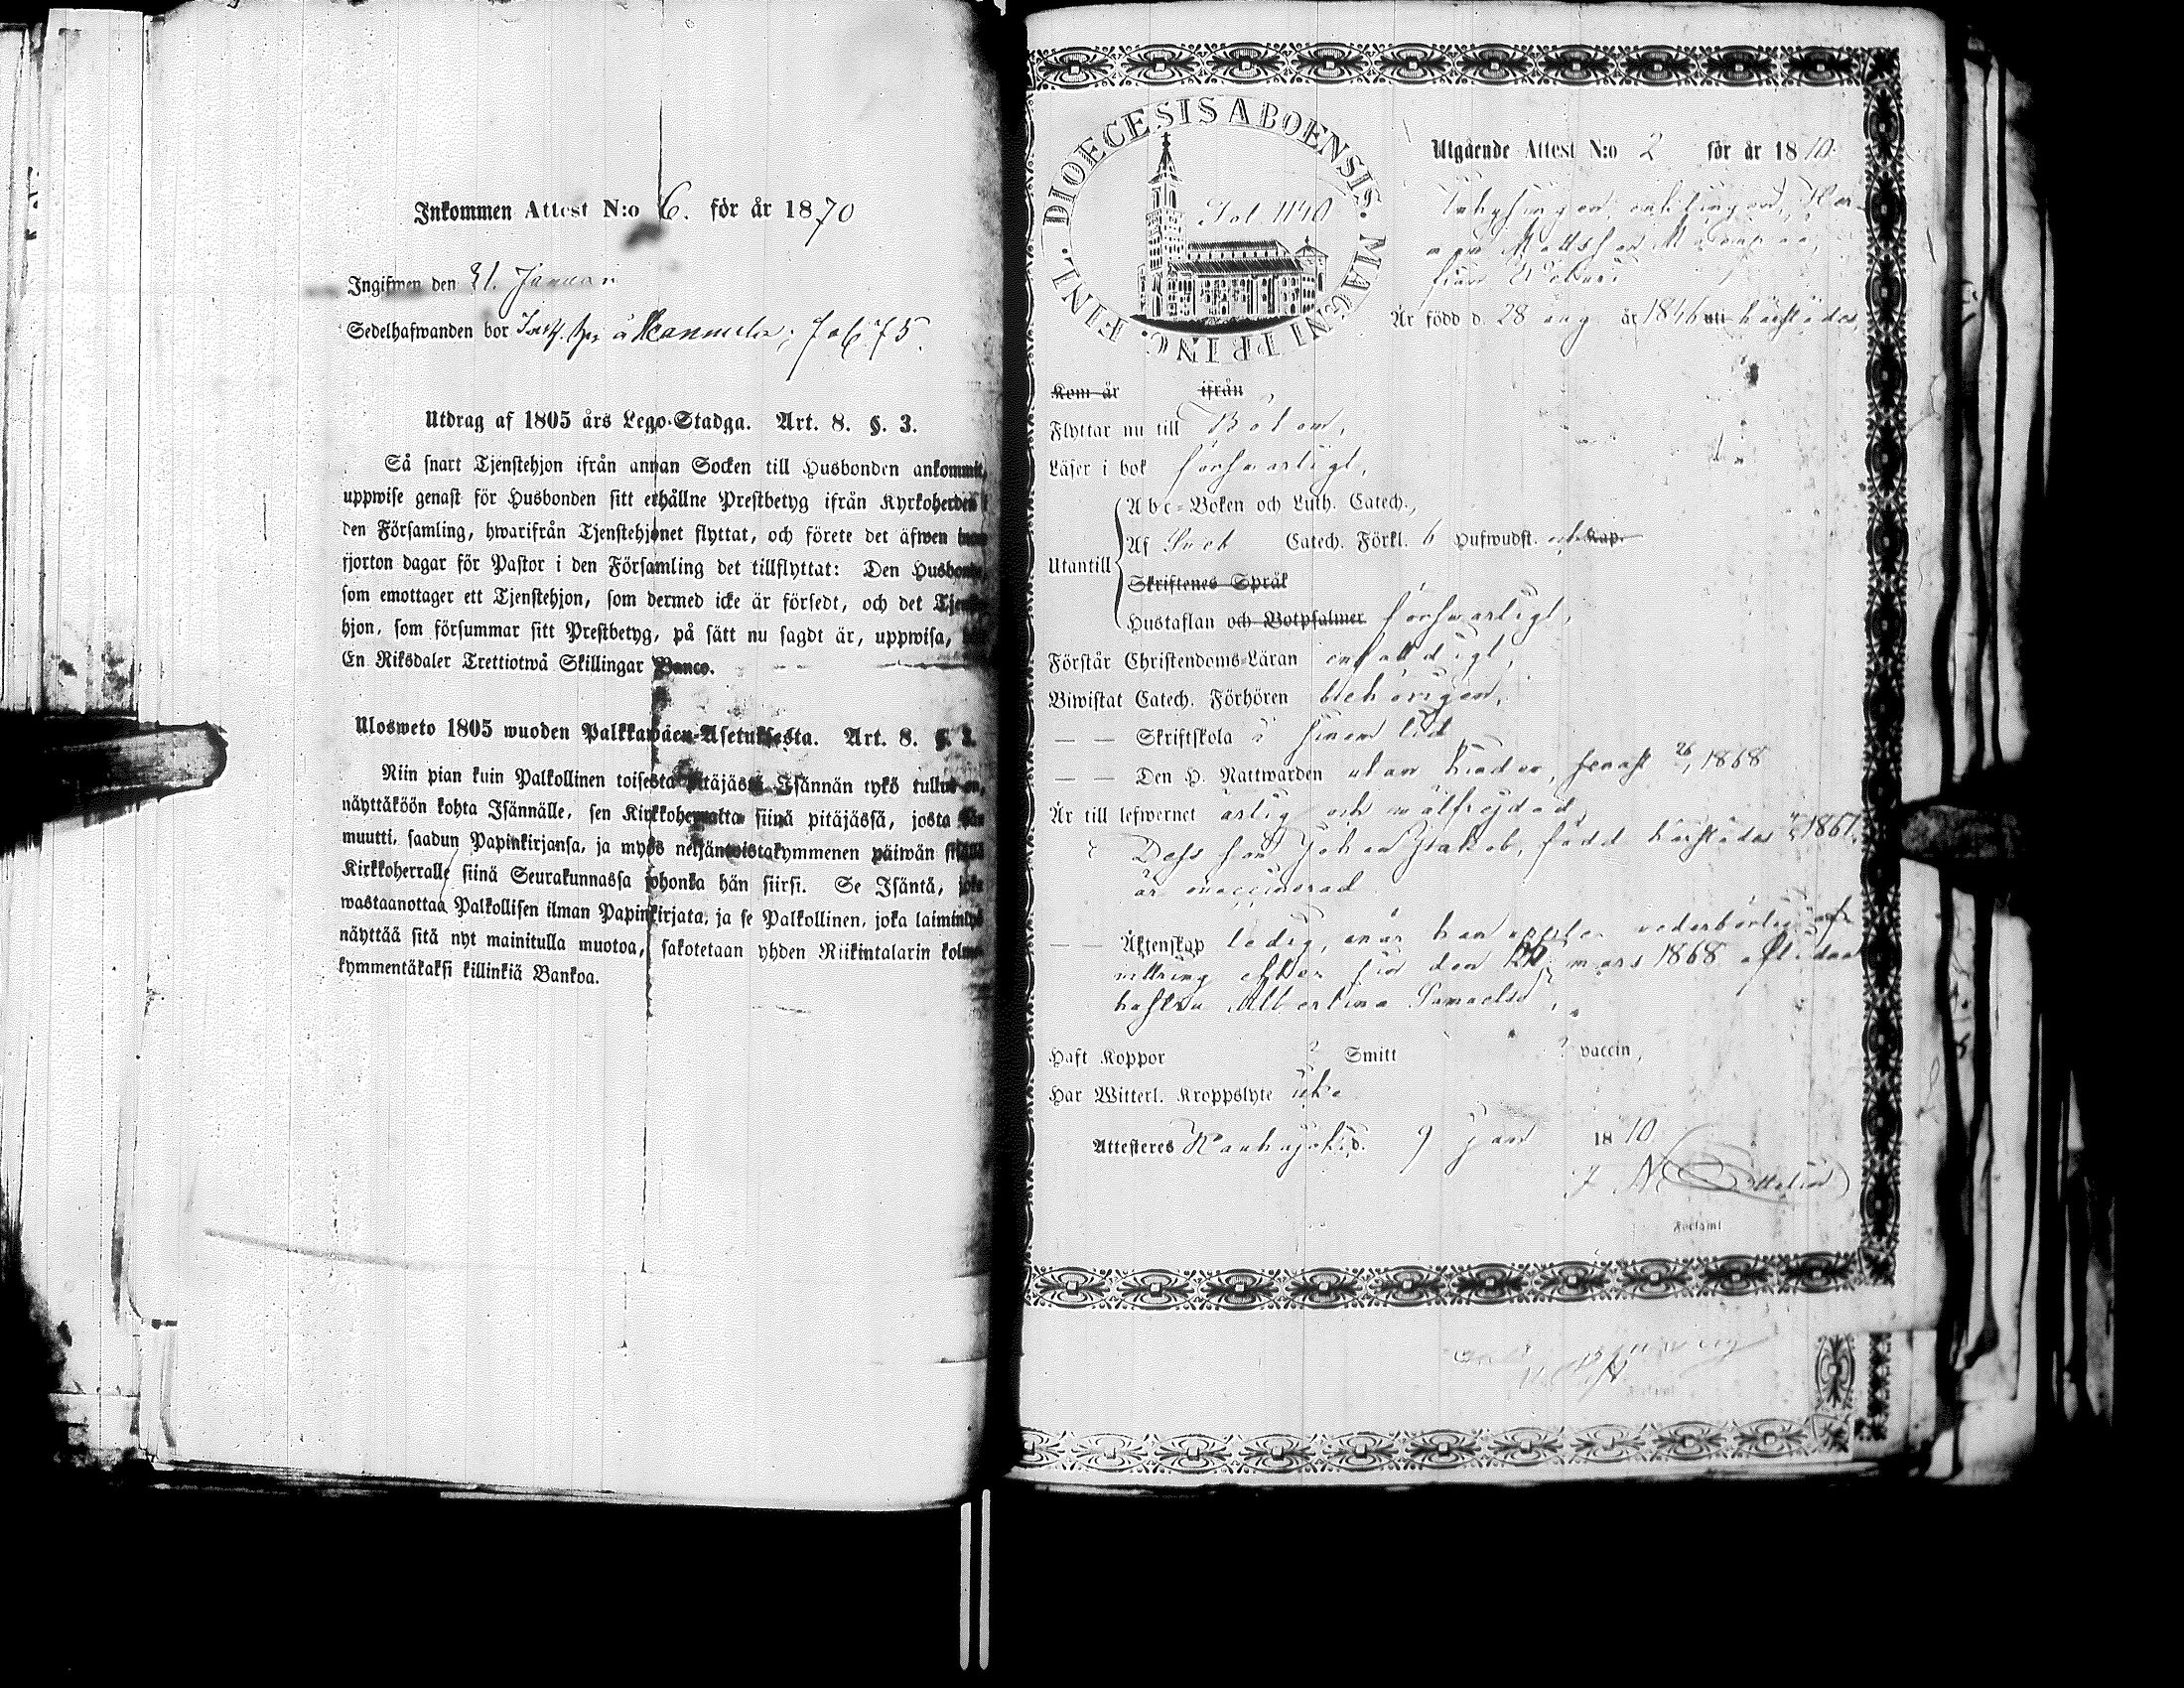 Inkommen Attest N:o 6. för år 1870
Ingifwen den 31. Januari
Sedelhafwanden bor
Utdrag af 1805 års Lego-Stadga. Art. 8. §. 3.
Så snart Tjenstehjon ifrån annan Socken till Husbonden ankommit,
uppwise genast för Husbonden sitt erhållne Prestbetyg ifrån Kyrkoherden i
den Församling, hwarifrån Tjenstehjonet flyttat, och förete det äfwen inom
fjorton dagar för Pastor i den Församling det tillflyttat: Den Husbonde,
som emottager ett Tjenstehjon, som dermed icke är försedt, och det Tjenste-
hjon, som försummar sitt Prestbetyg, på sätt nu sagdt är, uppwisa,
En Riksdaler Trettiotwå Skillingar Banco.
Ulosweto 1805 wuoden Palkkawäen-Asetuksesta. Art. 8. §. 3.
Niin pian kuin Palkollinen toisesta pitäjästä Isännän tykö tullut on,
näyttäköön kohta Isännälle, sen Kirkkoherralta siinä pitäjässä, josta hän
muutti, saadun Papinkirjansa, ja myös neljäntoistakymmenen päiwän sisällä
Kirkkoherralle siinä Seurakunnassa johonka hän siirsi. Se Isäntä, joka
wastaanottaa Palkollisen ilman Papinkirjata, ja se Palkollinen, joka laiminlyö
näyttää sitä nyt mainitulla muotoa, sakotetaan yhden Riikintalarin kolme-
kymmentäkaksi killinkiä Bankoa.
FINL. DIOECESIS ABOENSIS. MAGNI PRINC.
Fol. 1140
Utgående Attest N:o 2 för år 1870.
Är född d. 28 aug år 1846 uti härstädes,
Kom år ifrån
Flyttar nu till
Läser i bok förswarligt,
Utantill
Abc-Boken och Luth. Catech.,
Af Sveb Catech. Förkl. 6 Hufwudst. och Kap.
Skriftenes Språk
Hustaflan och Botpsalmer försvarligt,
Förstår Christendoms-Läran enfaldigt,
Biwistat Catech. Förhören behörigen,
— — Skriftskola i sinom tid
— — Den H. Nattwarden utan hinder, senast 1868
Är till lefwernet ärlig och wälfrejdad,
Dess son Johan Jakob, född härstädes 1867,
är ovaccinerad
— — Äktenskap ledig, när han vederbörlig af-
vittring efter sin den mars 1868 aflidna
hustru Albertina Samuelsd,
Haft Koppor ? Smitt ? vaccin,
Har Witterl. Kroppslyte icke
Attesteres Kauhajoki d. 9 jan 1870